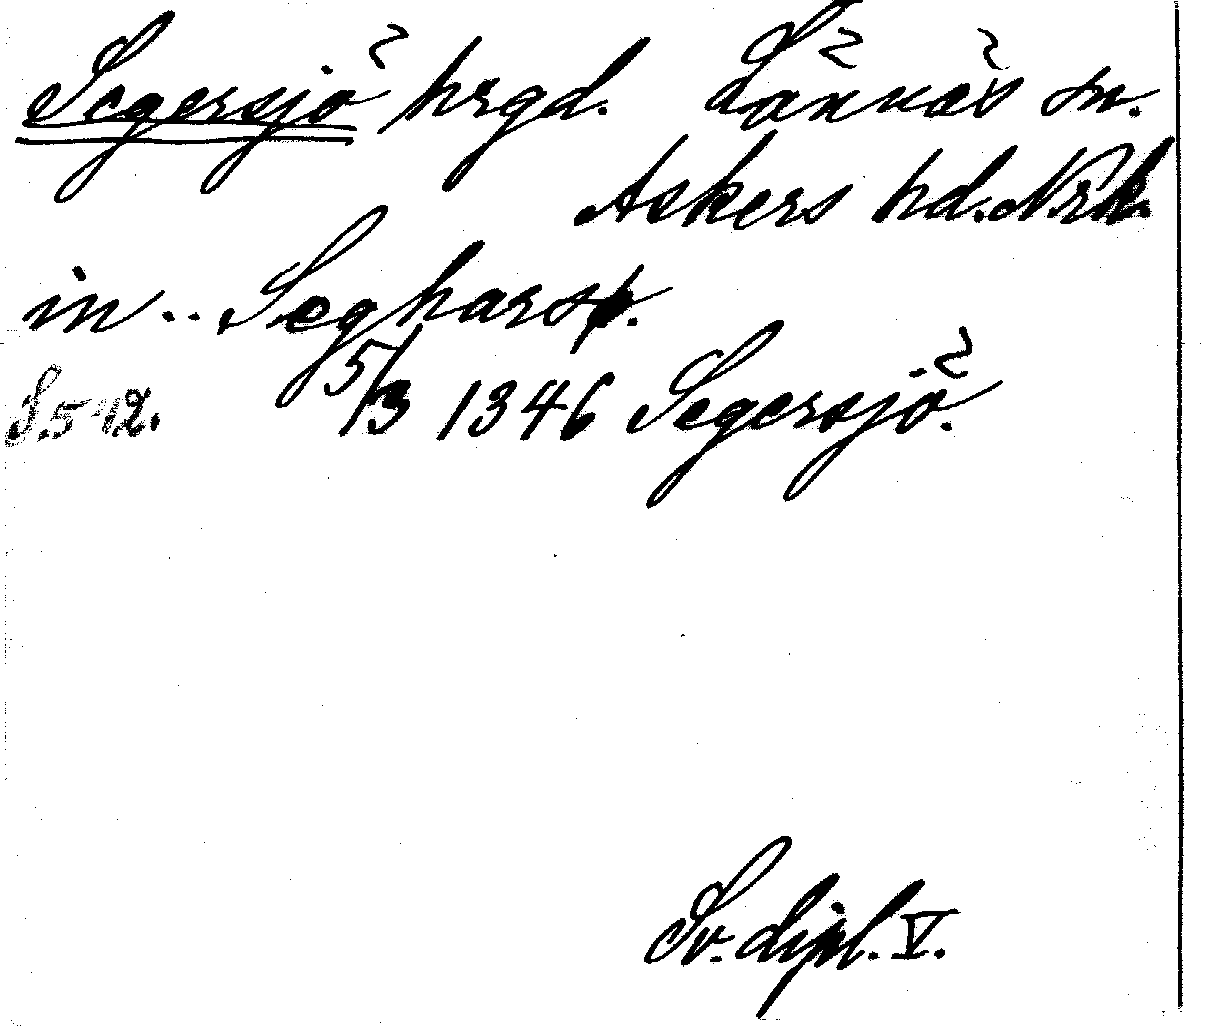 Segersjö hrgd. Lännäs sn.
Askers hd. Nrk.
in .. Seghars
S. 542. 5/3 1346 Segersjö.
Sv. dipl. V.